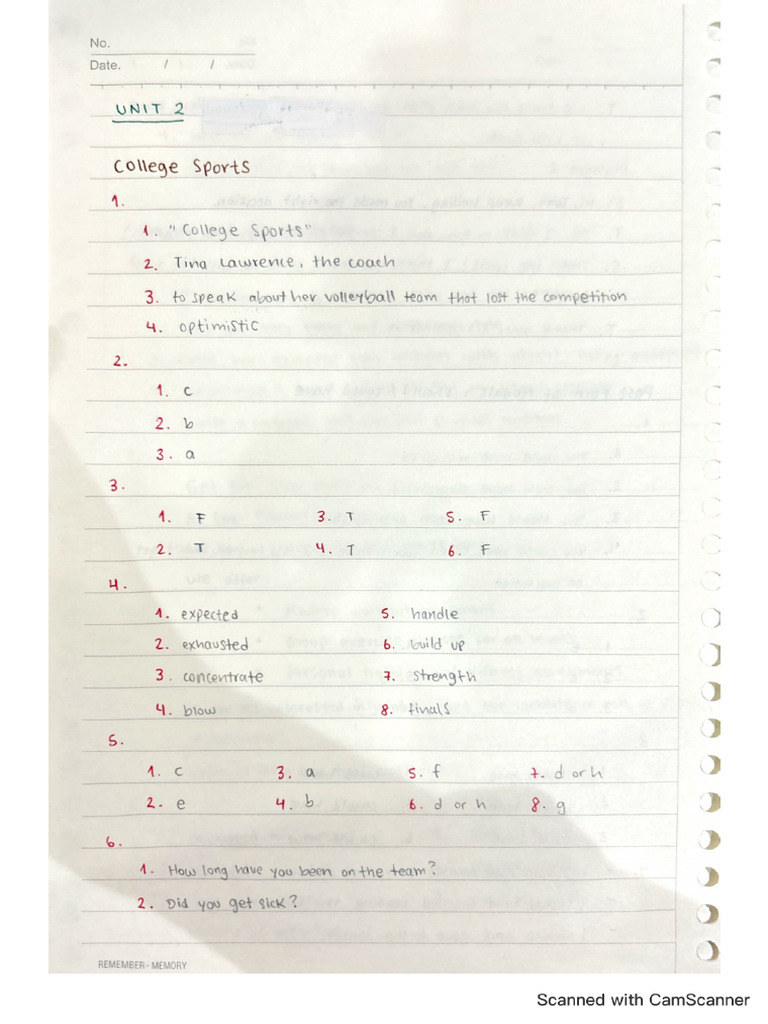 No.
Date. / /
UNIT 2
College Sports
1.
1. "College Sports"
2. Tina Lawrence, the coach
3. to speak about her volleyball team that lost the competition
4. optimistic
2.
1. c
2. b
3. a
3.
1. F 3. T 5. F
2. T 4. T 6. F
4.
1. expected 5. handle
2. exhausted 6. build up
3. concentrate 7. strength
4. blow 8. finals
5.
1. c 3. a 5. f 7. d or h
2. e 4. b 6. d or h 8. g
6.
1. How long have you been on the team?
2. Did you get sick?
REMEMBER - MEMORY
Scanned with CamScanner